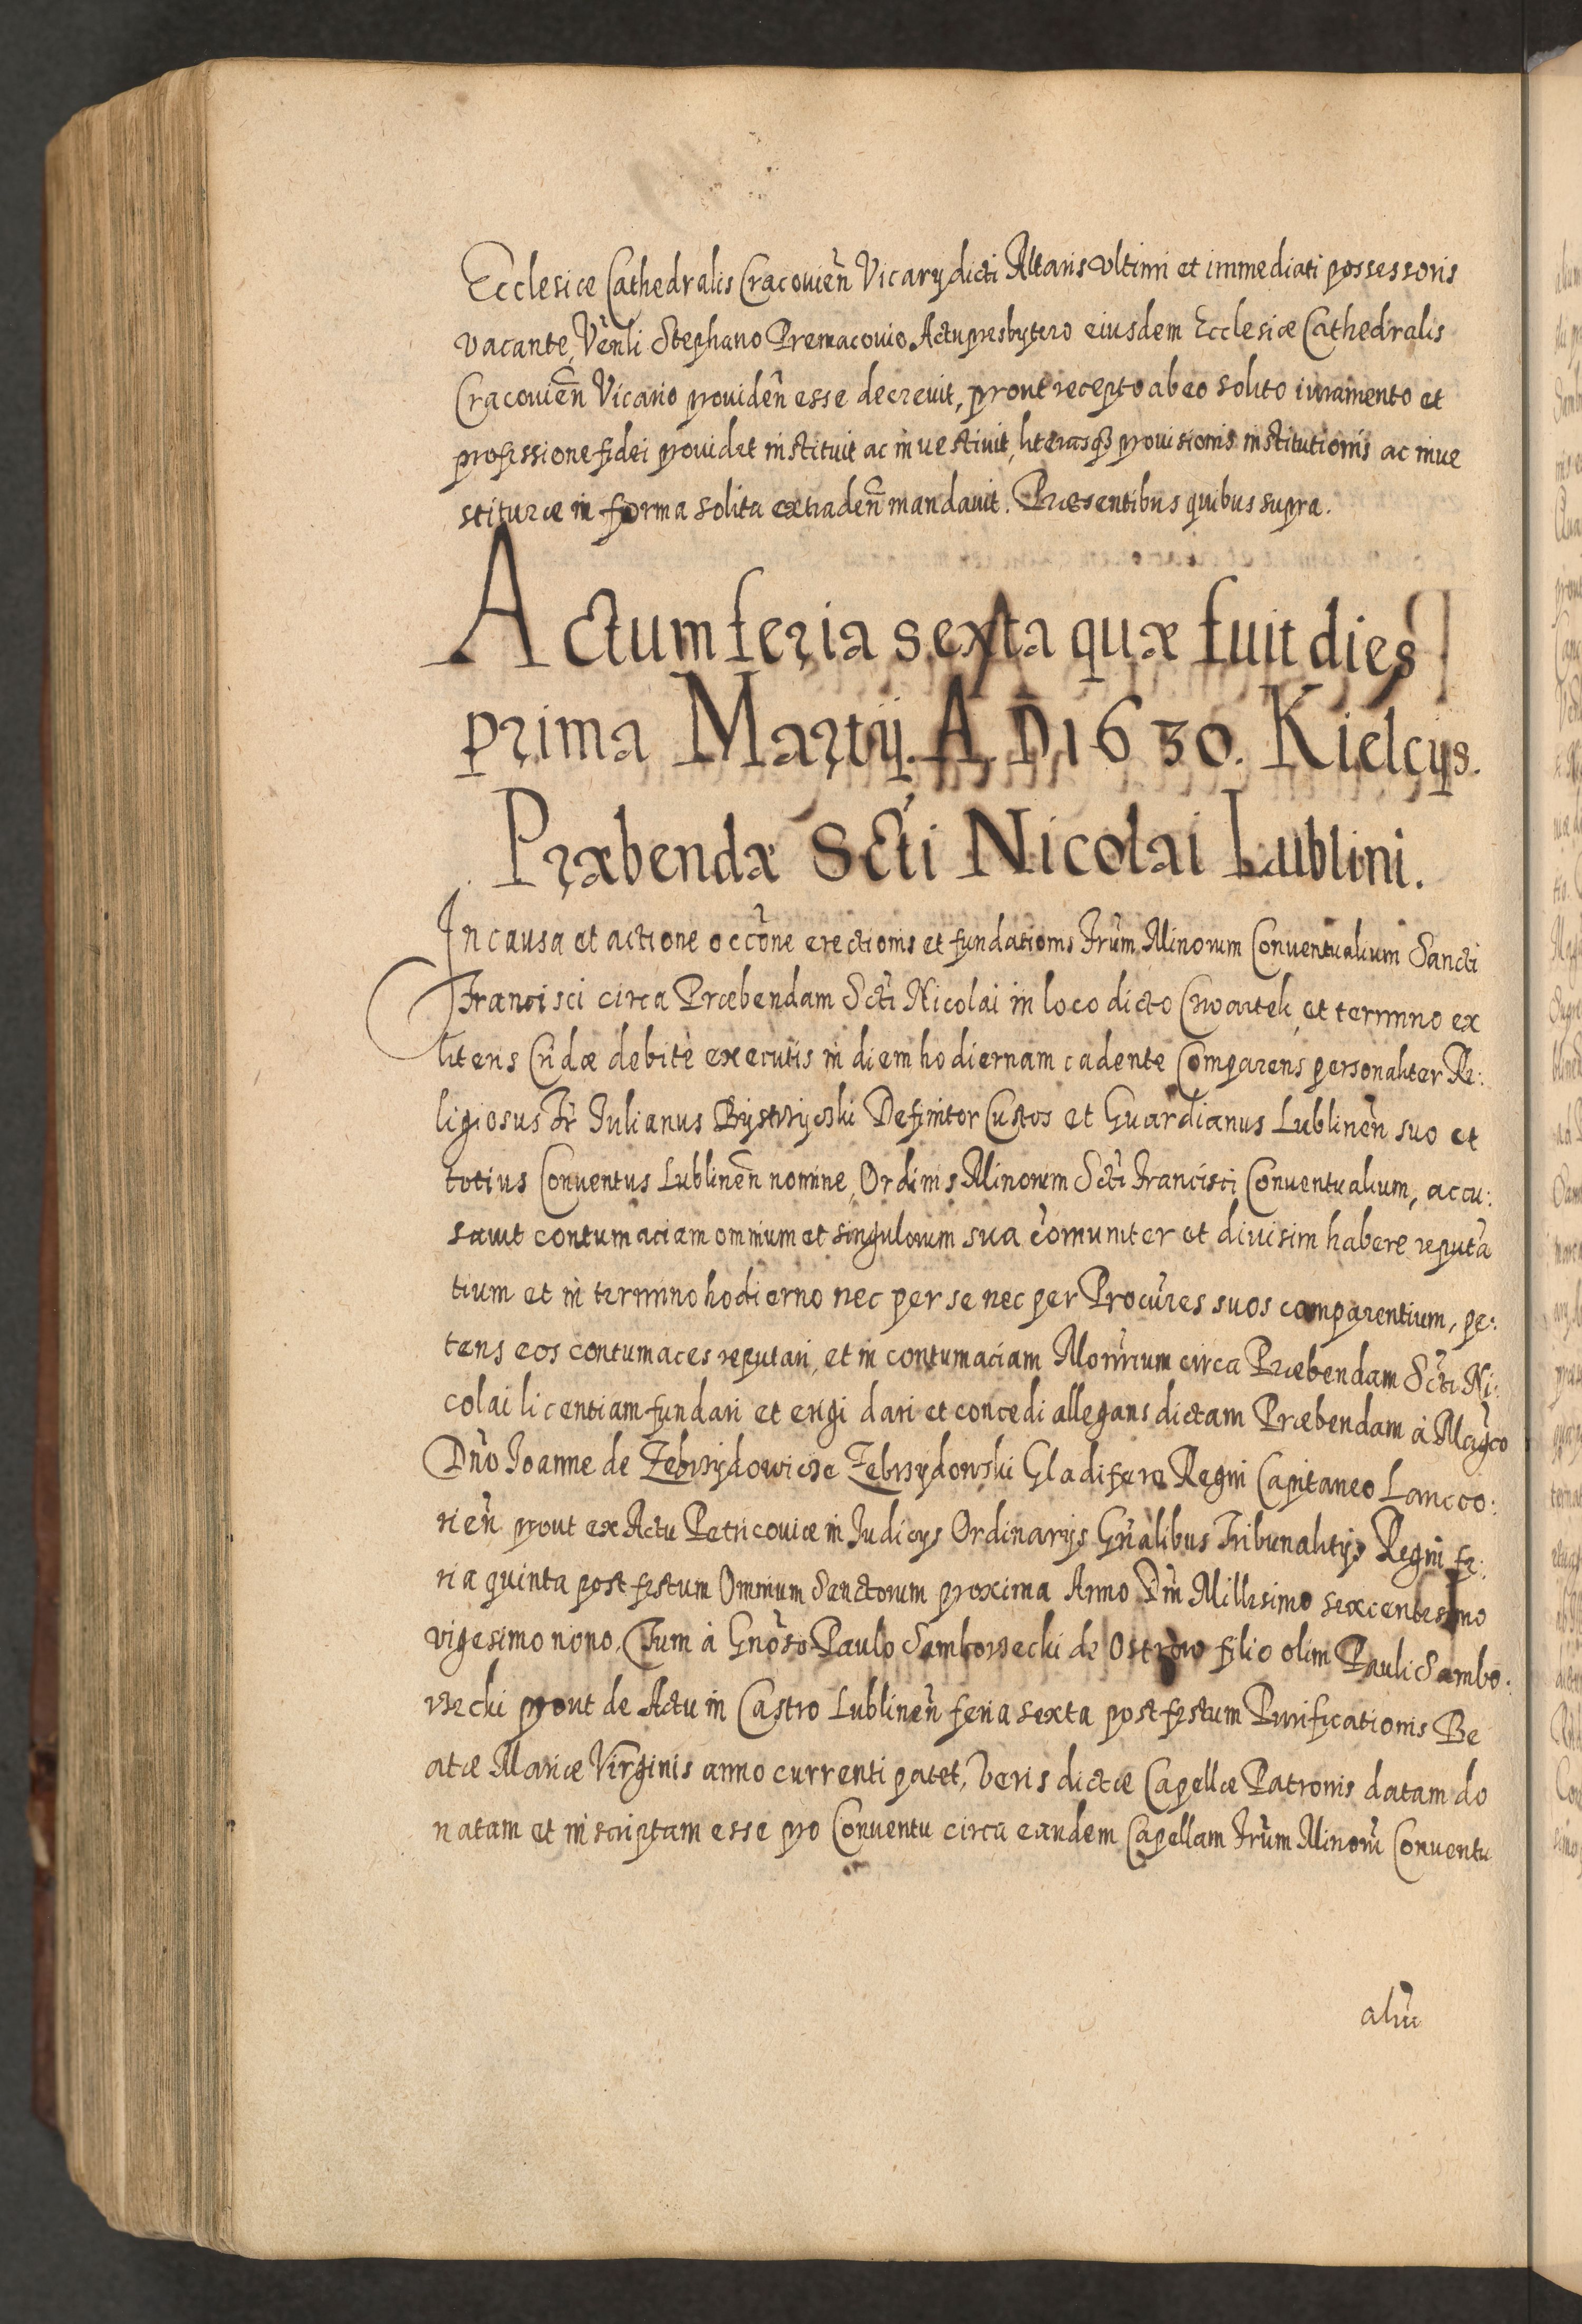 Ecclesiæ Cathedralis Cracouien̄ Vicarÿ dicti Altaris vltimi et immediati possessoris
vacante, Ven̄li Stephano Premacouio Actupresbytero eiusdem Ecclesiæ Cathedralis
Cracouien̄ Vicario prouiden̄ esse decreuit, prout recepto ab eo solito iuramento et
professione fidei prouidet instituit ac inuestiuit, literasq3 prouisionis institutionis ac inue
stituræ in forma solita extraden̄ mandauit. Præsentibus quibus supra.
Actum feria sexta quæ fuit dies
prima Martÿ. A. D 1630. Kielcÿs.
Præbendæ Scti Nicolai Lublini.
In causa et actione occōne erectionis et fundationis Frūm Minorum Conuentualium Sancti
Francisci circa Præbendam Scti Nicolai in loco dicto Czwartek, et termino ex
literis Cridæ debitè executis in diem hodiernam cadente Comparens personaliter Re:
ligiosus Fr̄ Iulianus Bystrzycki Definitor Custos et Guardianus Lublinen̄ suo et
totius Conuentus Lublinen̄ nomine, Ordinis Minorum Scti Francisci Conuentualium, accu:
sauit contumaciam omnium et singulorum sua cōmuniter et diuisim habere reputā
tium et in termino hodierno nec per se nec per Procūres suos comparentium, pe:
tens eos contumaces reputari, et in contumaciam Monr̄ium circa Præbendam Scti Ni:
colai licentiam fundari et erigi dari et concedi allegans dictam Præbendam à Magco
Dn̄o Ioanne de Zebrzÿdowicze Zebrzydowski Gladifero Regni Capitaneo Lanco:
rien̄ prout ex Actu Petricouiæ in Iudicÿs Ordinarÿs Gn̄alibus Tribunalitÿs Regni fe:
ria quinta post festum Omnium Sanctorum proxima Anno Dni Millesimo sexcentesimo
vigesimo nono. Tum à Gnōso Paulo Samborzecki de Ostrow filio olim Pauli Sambo:
rzecki prout de Actu in Castro Lublinen̄ feria sexta post festum Purificationis Be
atæ Mariæ Virginis anno currenti patet, veris dictæ Capellæ Patronis datam do
natam et inscriptam esse pro Conuentu circa eandem Capellam Frūm Minorū Conuentu
aliū